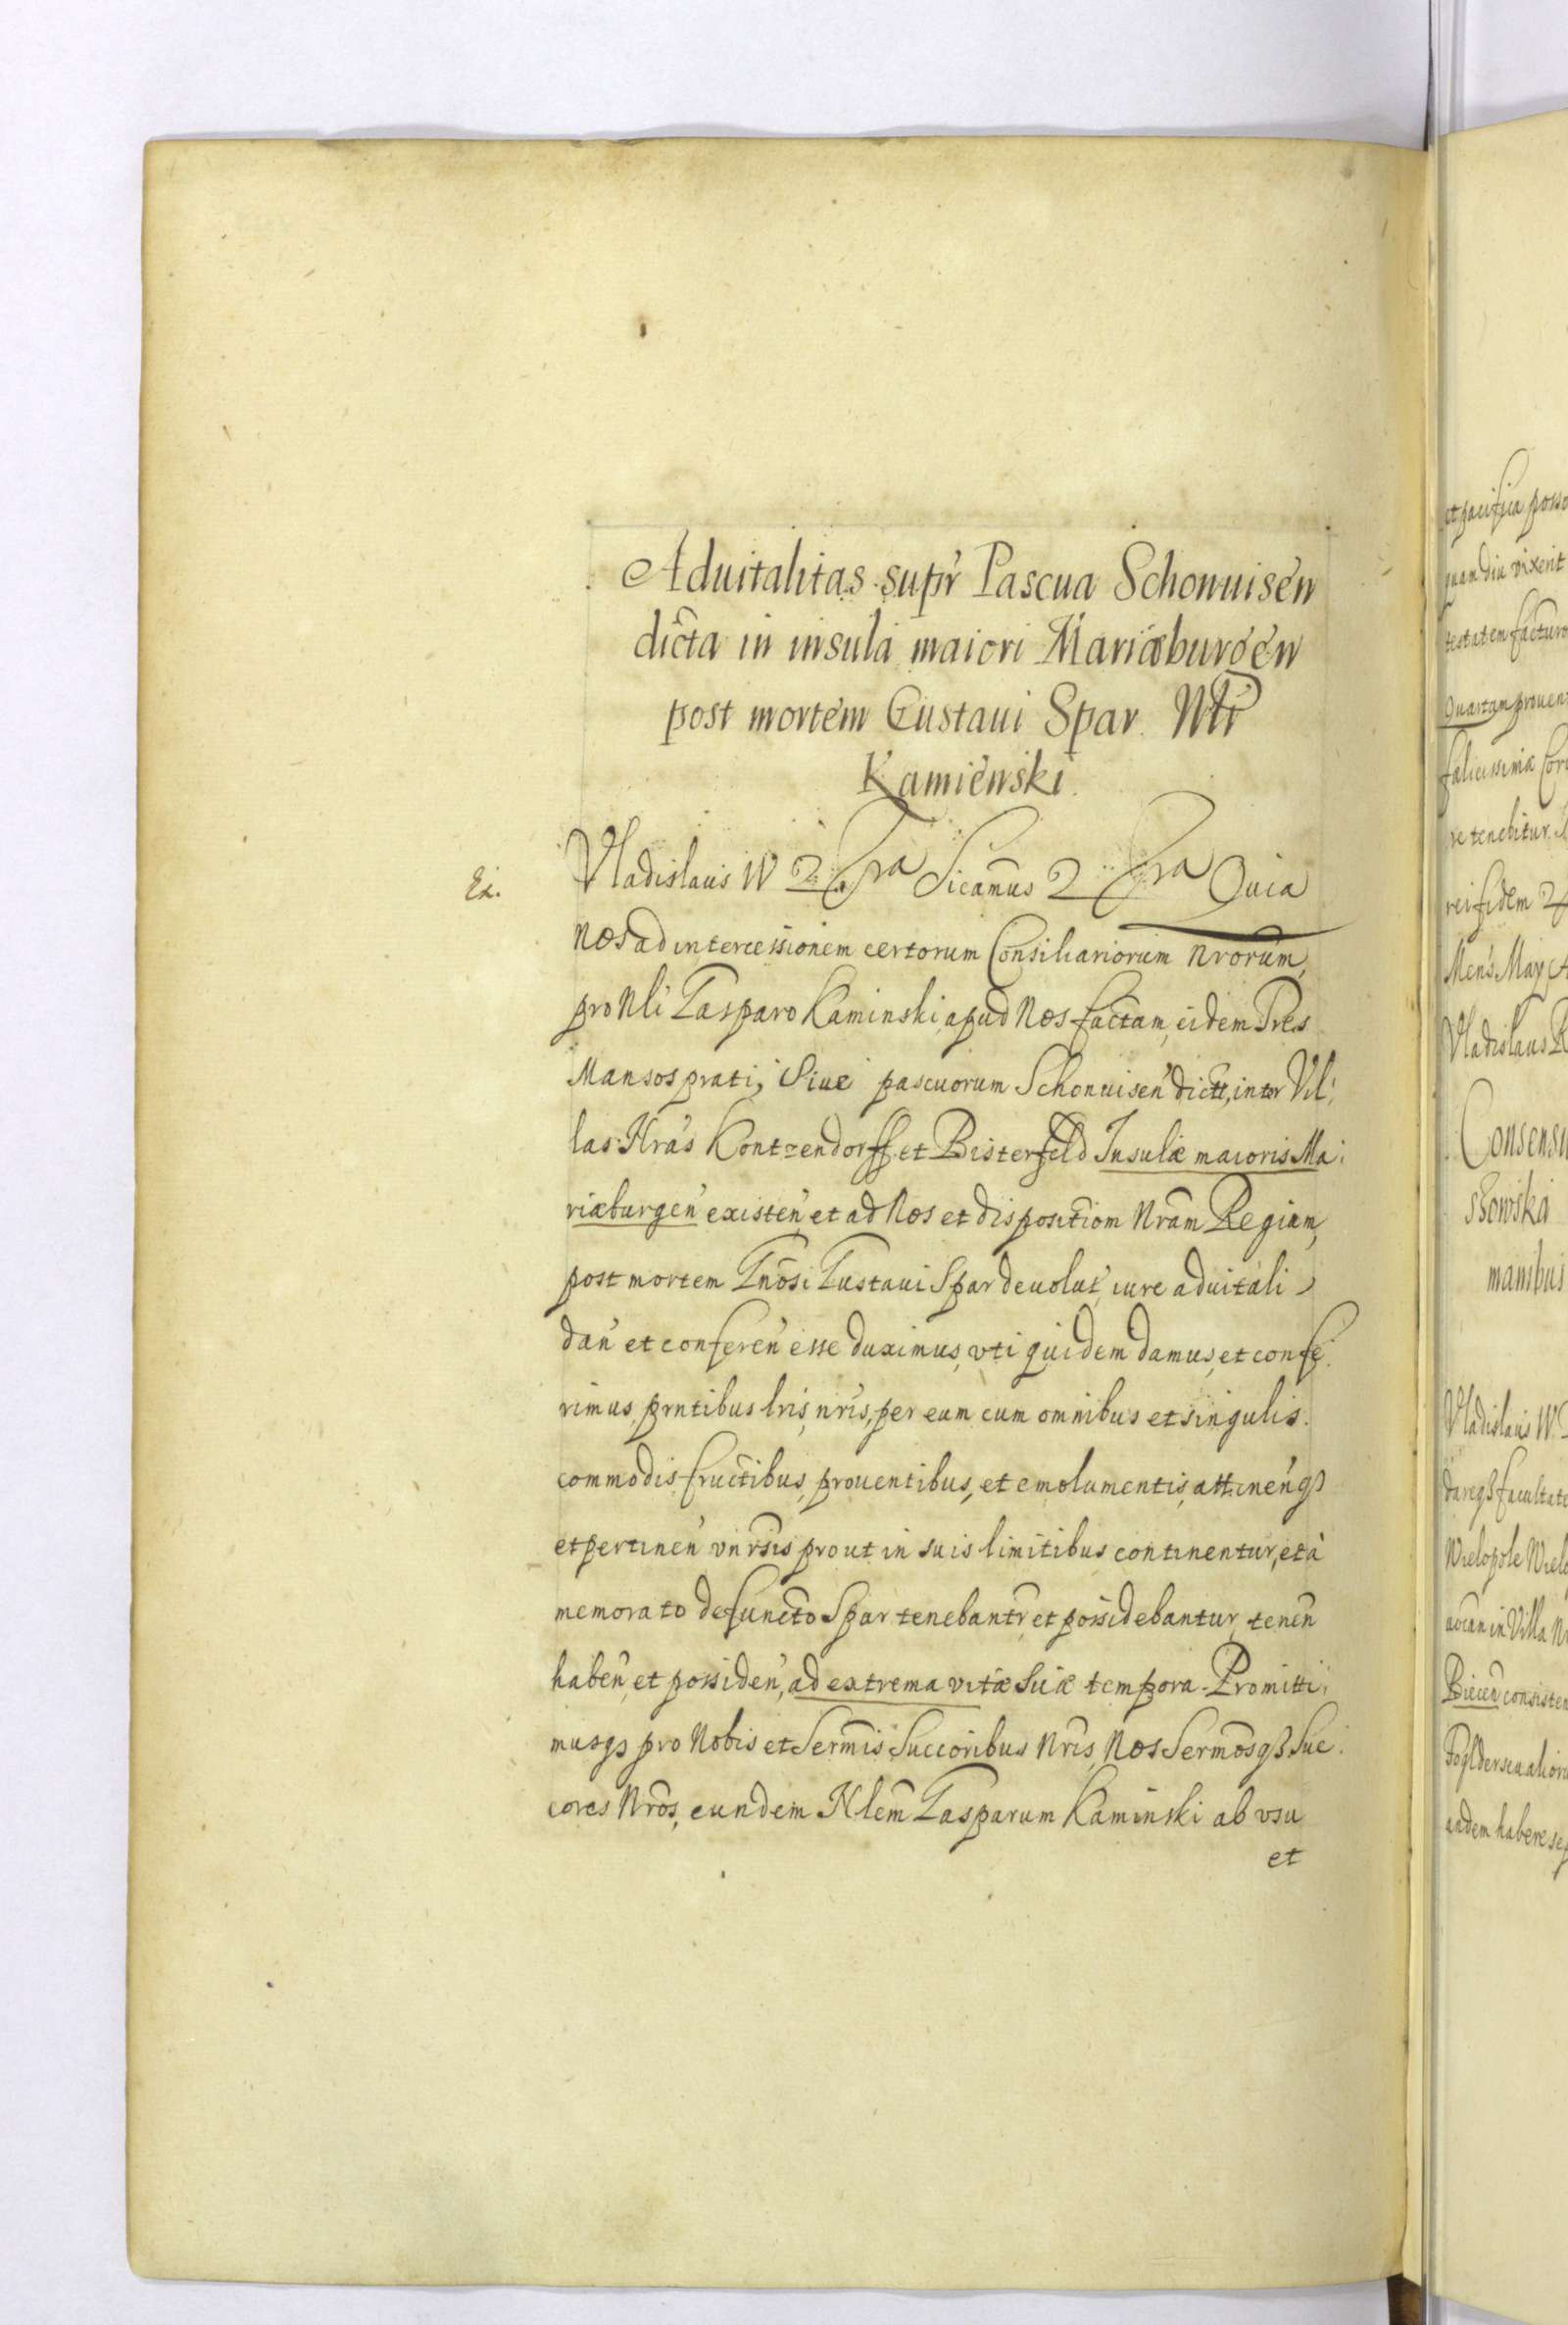 Aduitalitas supr Pascua Schonuisen
dicta in insula maiori Mariæburgen
post mortem Gustaui Spar. Nli
Kamienski.
Ex.
Vladislaus IV Significamus Quia
Nos ad intercessionem certorum Consiliariorum Nrorum,
pro Nli Gasparo Kaminski, apud Nos factam, eidem Tres
Mansos prati, Siue pascuorum Schonuisen dict, inter Vil:
las Nras Kontzendorff et Bisterfeld Insulæ maioris Ma:
riæburgen existen, et ad Nos et dispositiom Nram Regiam,
post mortem Gnosi Gustaui Spar deuolut, iure aduitali
dan et conferen esse duximus, vti quidem damus, et confe:
rimus, prntibus lris nris, per eum cum omnibus et singulis
commodis, fructibus, prouentibus, et emolumentis, attinenqȝ
et pertinen vnrsis prout in suis limitibus continentur, et à
memorato defuncto Spar tenebantr, et possidebantur, tenen
haben, et possiden, ad extrema vitæ suæ tempora. Promitti:
musqȝ pro Nobis et Sermis Succoribus Nris, Nos Sermosqȝ Suc:
cores Nros, eundem Nlem Gasparum Kaminski ab vsu
et
et pacifica
quam diu vixerit
Quartam prouen
re tenebitur.
rei fidem
Mens May
Vladislaus R
Consensu
manibus
Vladislaus IV
Wielopole
in Villa
Biecen consisten